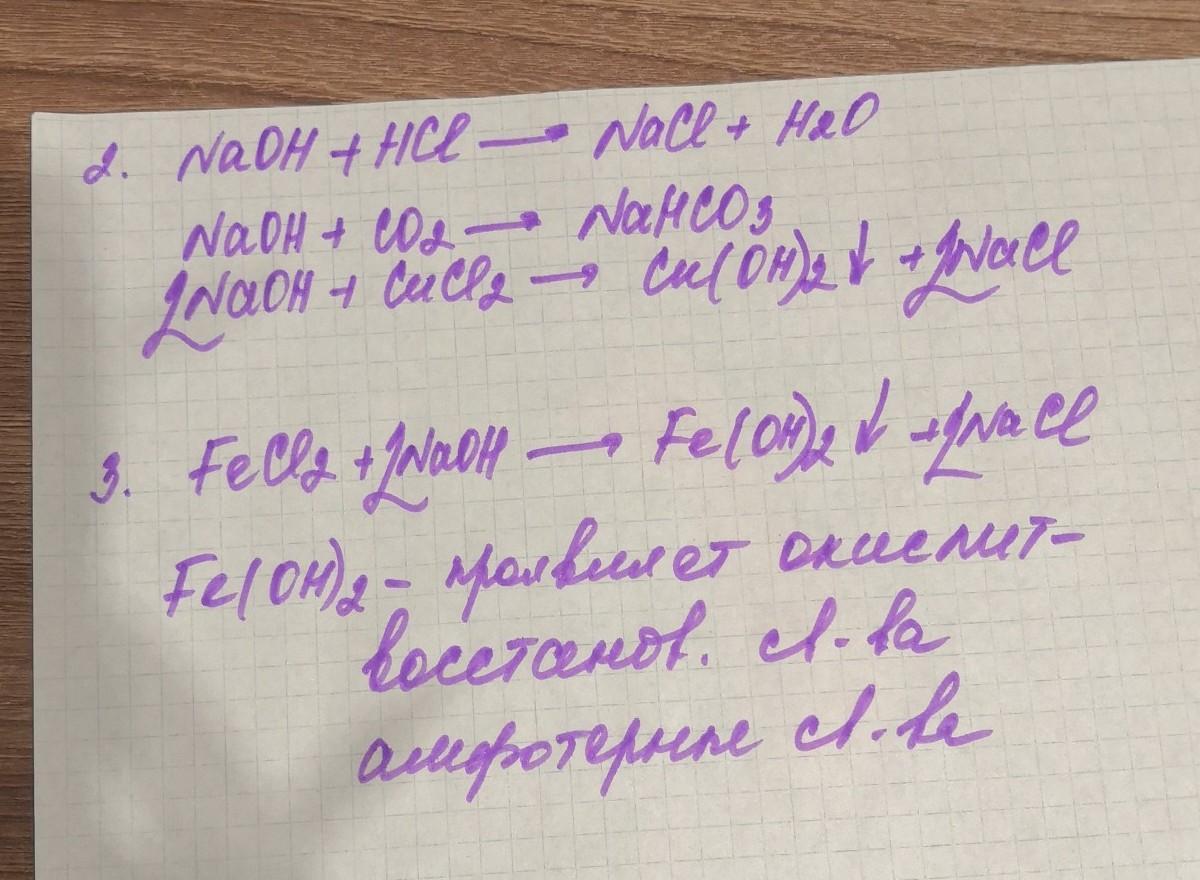 2. NaOH + HCl → NaCl + H2O
NaOH + CO2 → NaHCO3
2NaOH + CuCl2 → Cu(OH)2↓ + 2NaCl
3. FeCl2 + 2NaOH → Fe(OH)2↓ + 2NaCl
Fe(OH)2 - проявляет окислит-
восстанов. св-ва
амфотерные св-ва